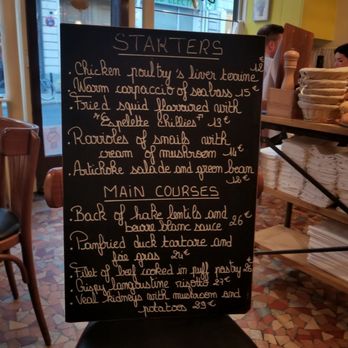 STARTERS
. Chicken poultry's liver terrine 12
. Warm carpaccio of seabass 15 €
. Fried squid flavoured with
"Espelette Chillies" 13 €
. Ravioles of snails with
cream of mushroom 14 €
. Artichoke salade and green bean
12 €
MAIN COURSES
. Back of hake lentils and
beurre blanc sauce 26 €
. Panfried duck tartare and
foie gras 24 €
. Filet of beef cooked in puff pastry 26
. Crispy langoustine risotto 27 €
. Veal kidneys with mustroom and
potatoes 29 €